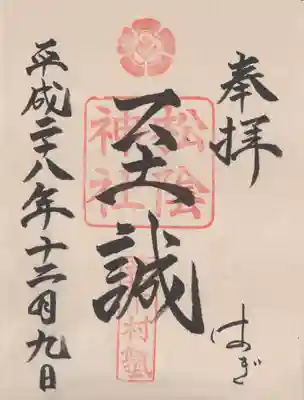 奉拝
はぎ
至誠
松陰
神社
松下村塾
平成二十八年十二月九日